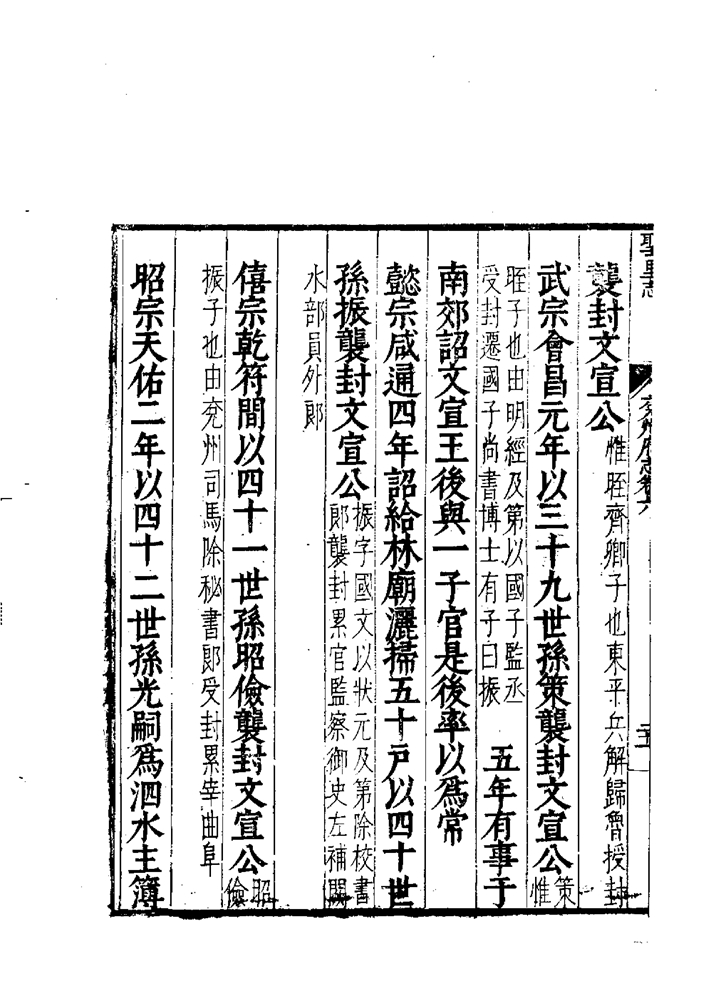 聖里志 兗州府志卷六
襲封文宣公惟晊齊卿子也東平兵解歸魯授封
武宗會昌元年以三十九世孫策襲封文宣公策惟
晊子也由明經及第以國子監丞
受封遷國子尚書博士有子曰振
五年有事于
南郊詔文宣王後與一子官是後率以爲常
懿宗咸通四年詔給林廟灑掃五十户以四十世
孫振襲封文宣公
振字國文以狀元及第除校書
郎襲封累官監察御史左補闕
水部員外郎
僖宗乾符間以四十一世孫昭儉襲封文宣公昭儉
振子也由兗州司馬除秘書郎受封累宰曲阜
昭宗天佑二年以四十二世孫光嗣爲泗水主簿